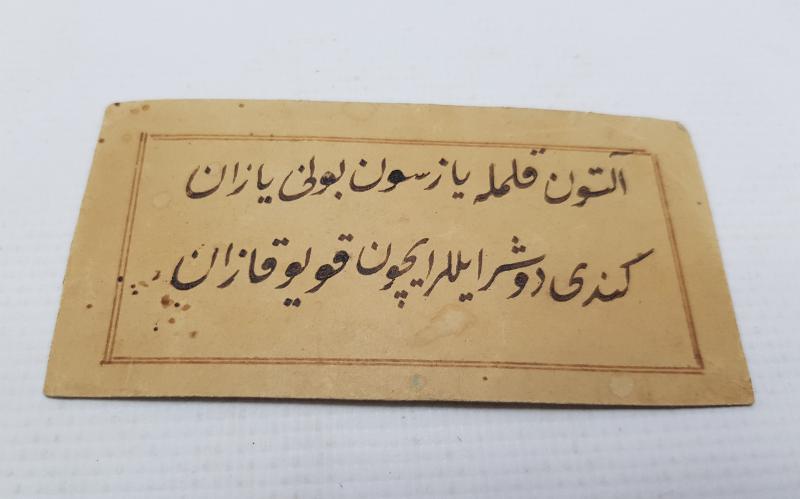 آلتون قلمله یازسون بونی یازان
کندی دوشر ایللر ایچون قویو قازان